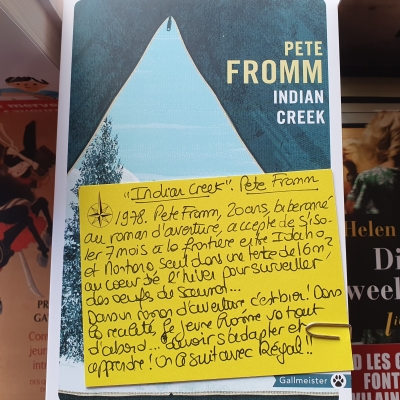 PETE
FROMM
INDIAN
CREEK
"Indian Creek". Pete Fromm
1978. Pete Fromm, 20 ans, biberonné
au roman d'aventure, accepte de s'iso-
ler 7 mois à la frontière entre Idaho
et Montana, seul dans une tente de 16m²
au coeur de l'hiver pour surveiller
des oeufs de saumon...
Dans un roman d'aventure c'est bien! Dans
la réalité, le jeune homme va tout
d'abord... devoir s'adapter et
apprendre! On le suit avec Régal!!
Gallmeister
merve
Helen
Di
week
D LES C
FONT